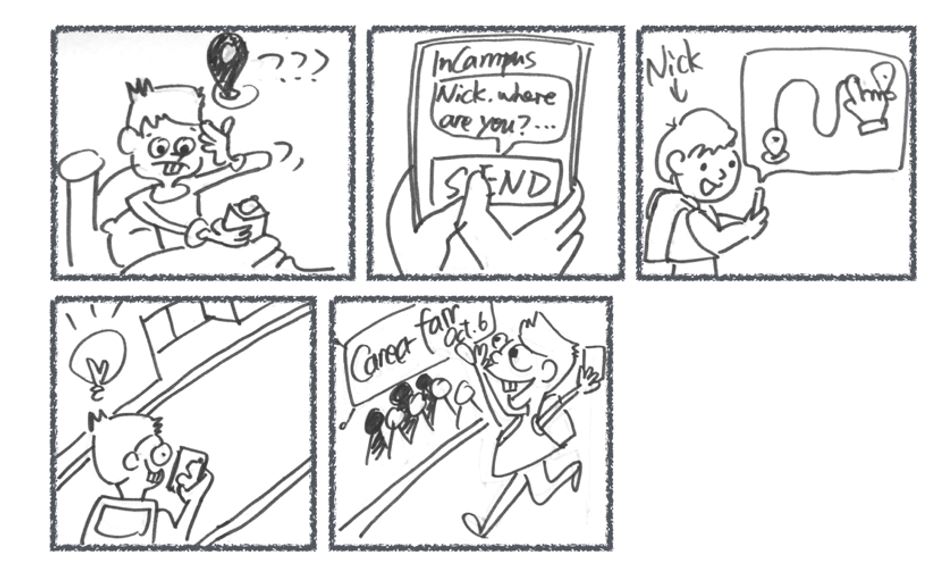 ???
InCampus
Nick. where
are you?...
SEND
Nick
Career fair
Oct. 6